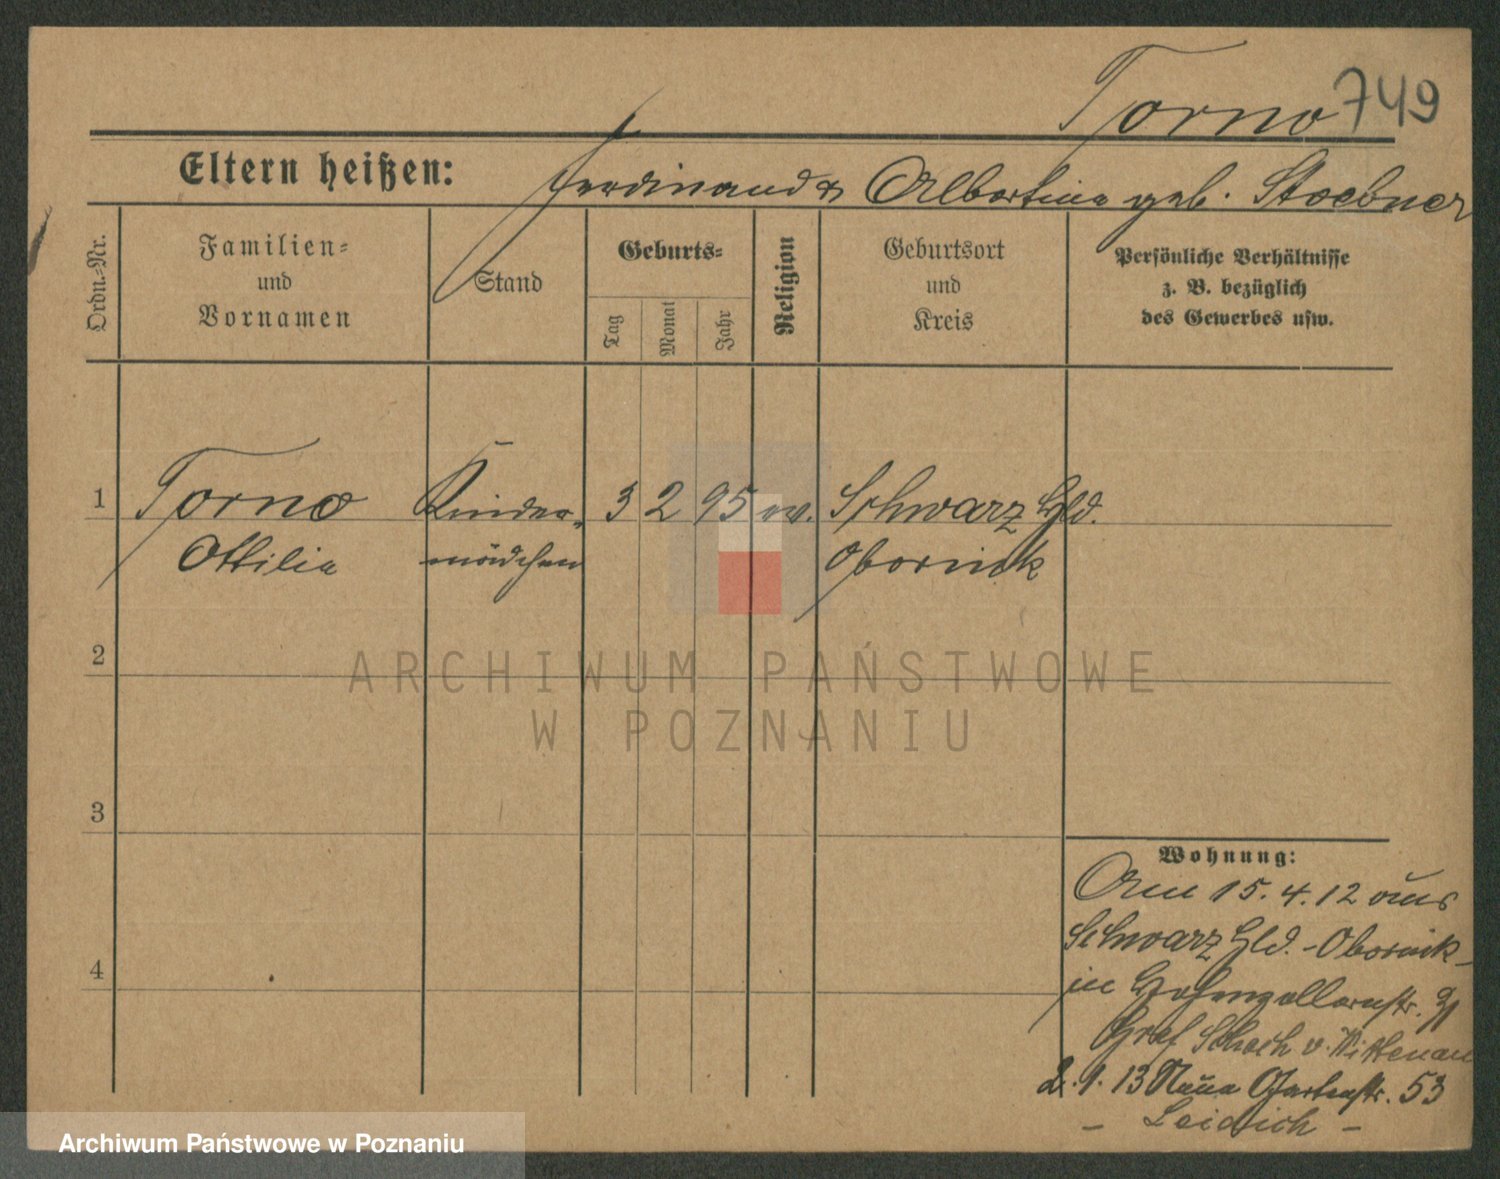 Torno 749
Eltern heißen: Ferdinand & Albertine geb. Stoebner
Ordn.-Nr.
Familien-
und
Vornamen
Stand
Geburts-
Tag
Monat
Jahr
Religion
Geburtsort
und
Kreis
Persönliche Verhältnisse
z. B. bezüglich
des Gewerbes usw.
1 Torno Kinder- 3 2 95 ev. Schwarz Hld.
Ottilie mädchen Obornik
2
ARCHIWUM PAŃSTWOWE
W POZNANIU
3
4
Wohnung:
Am 15.4.12 aus
Schwarz Hld. - Obornik -
in Hohenzollernstr.
Graf v. Wittenau
2.9.13 Neue Gartenstr. 53
- Leidich -
Archiwum Państwowe w Poznaniu